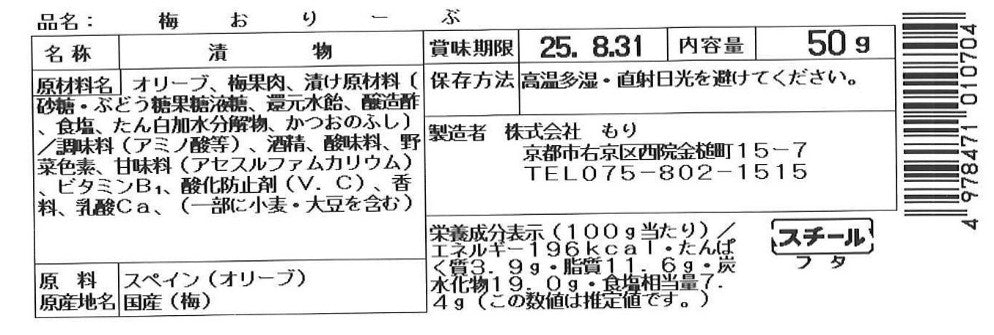 品名： 梅おりーぶ
名称 漬物
賞味期限 25. 8.31 内容量 50g
原材料名 オリーブ、梅果肉、漬け原材料（
砂糖・ぶどう糖果糖液糖、還元水飴、醸造酢
、食塩、たん白加水分解物、かつおのふし）
／調味料（アミノ酸等）、酒精、酸味料、野
菜色素、甘味料（アセスルファムカリウム）
、ビタミンB₁、酸化防止剤（V．C）、香
料、乳酸Ca、（一部に小麦・大豆を含む）
原料 スペイン（オリーブ）
原産地名 国産（梅）
保存方法 高温多湿・直射日光を避けてください。
製造者 株式会社 もり
京都市右京区西院金槌町15-7
TEL075-802-1515
栄養成分表示（100g当たり）／
エネルギー196kcal・たんぱ
く質3.9g・脂質11.6g・炭
水化物19.0g・食塩相当量7.
4g（この数値は推定値です。）
スチール
フタ
4 978471 010704